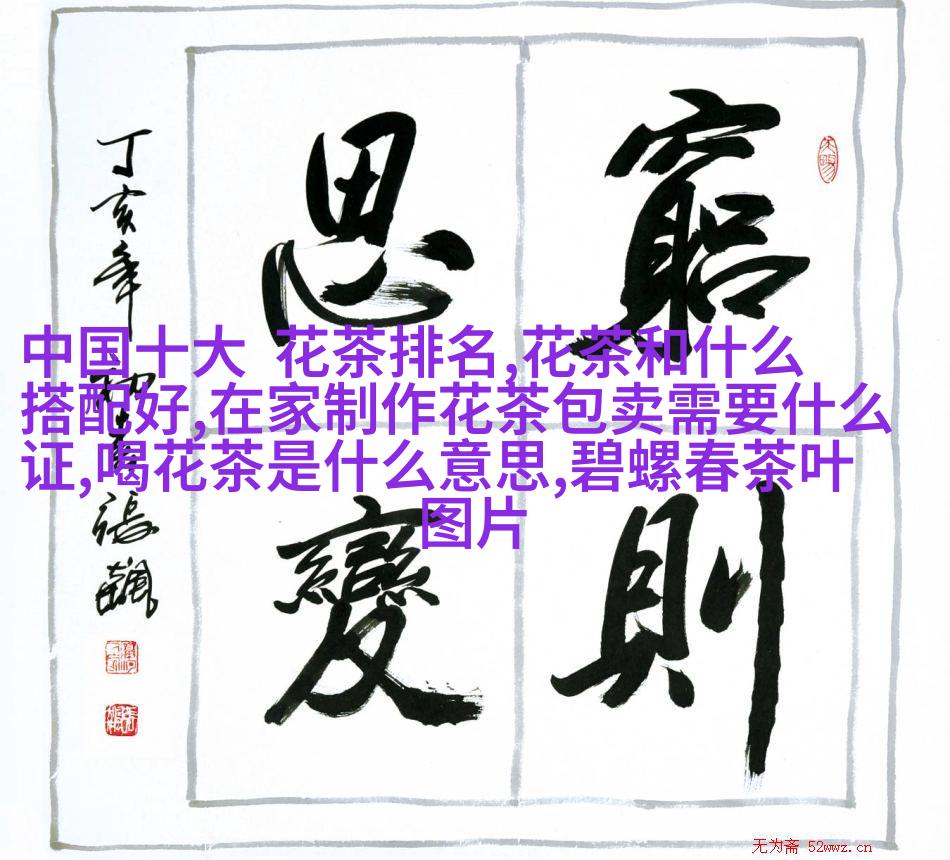 窮則
思變
丁亥年
張飆
中国十大 花茶排名,花茶和什么
搭配好,在家制作花茶包卖需要什么
证,喝花茶是什么意思,碧螺春茶叶
图片
无为斋 52wwz.cn